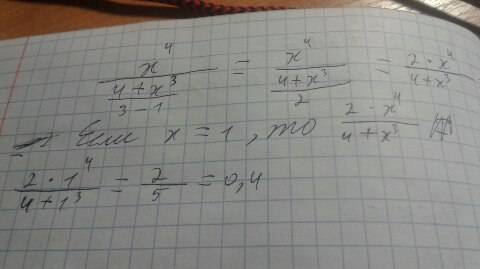 x⁴/((4+x³)/(3-1)) = x⁴/((4+x³)/2) = (2·x⁴)/(4+x³)
Если x=1, то (2·x⁴)/(4+x³)
(2·1⁴)/(4+1³) = 2/5 = 0,4